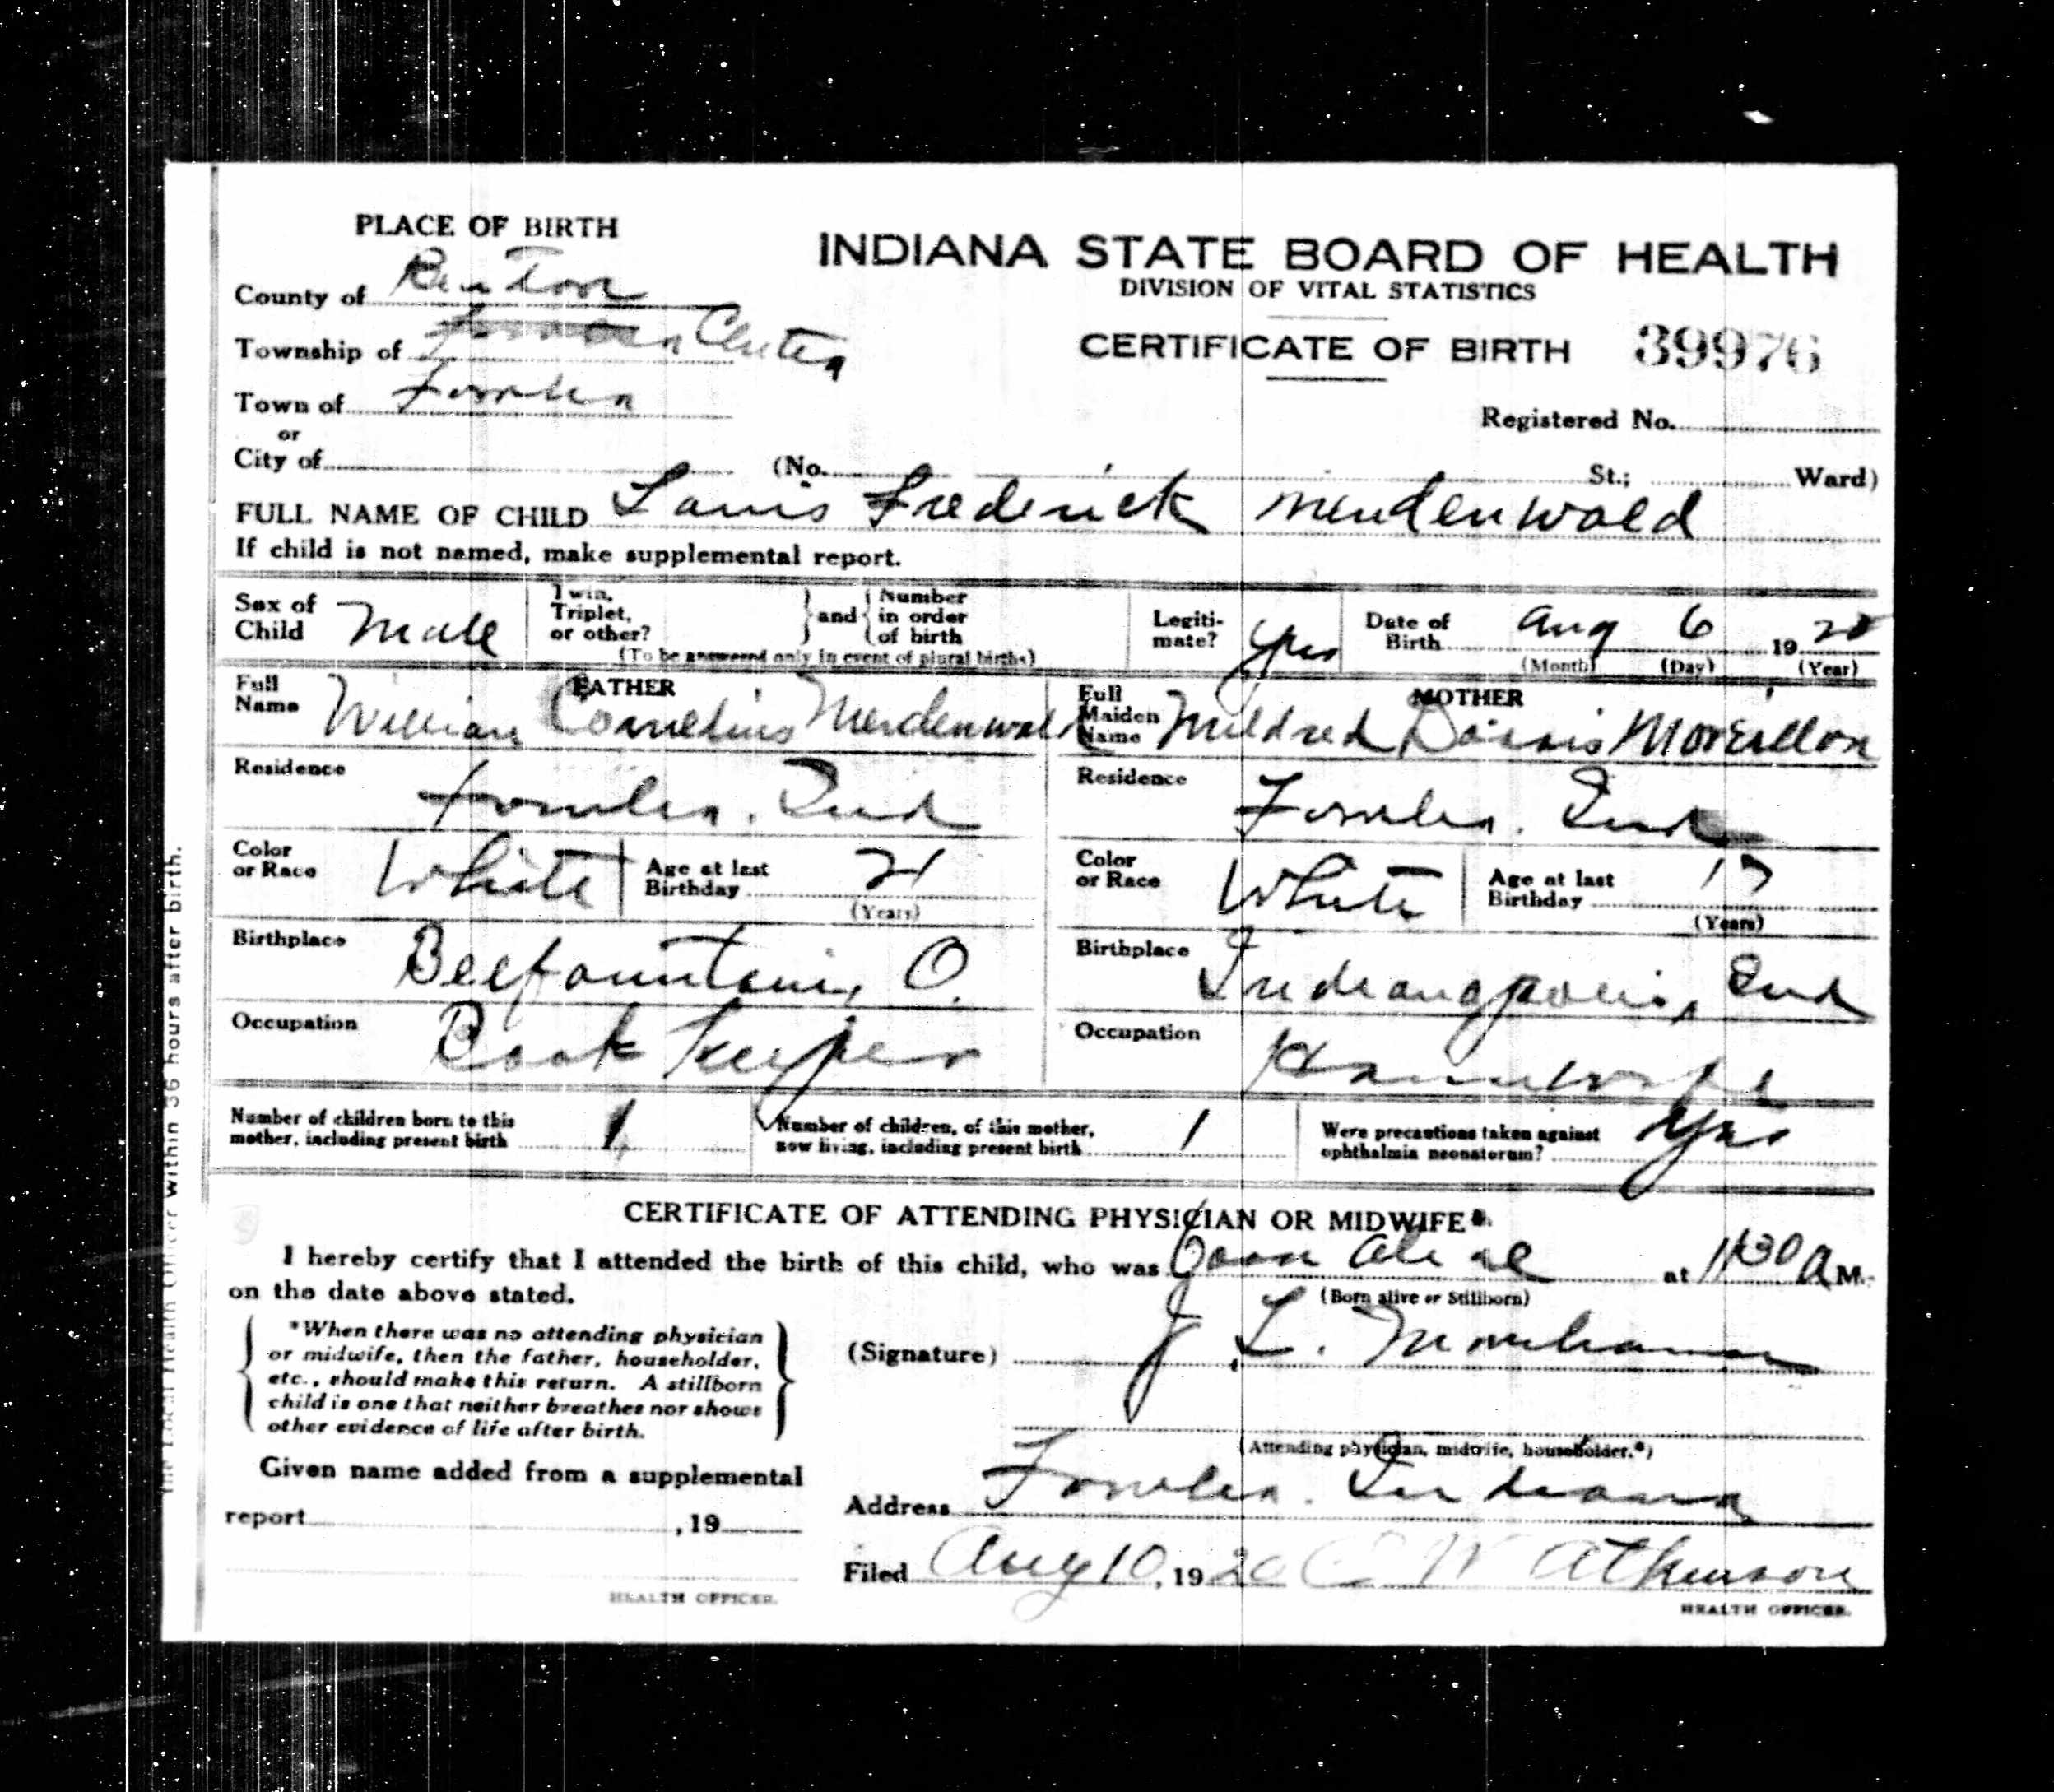 PLACE OF BIRTH
INDIANA STATE BOARD OF HEALTH
DIVISION OF VITAL STATISTICS
County of Benton
CERTIFICATE OF BIRTH 39976
Township of Center
Town of Fowler
Registered No.
or
City of (No. St.; Ward)
FULL NAME OF CHILD Louis Frederick
If child is not named, make supplemental report.
Sex of Child Male
Twin, Triplet, or other? and Number in order of birth
(To be answered only in event of plural births)
Legiti-mate? yes
Date of Birth Aug 6 1920
(Month) (Day) (Year)
FATHER
Full Name William Cornelius
MOTHER
Full Maiden Name Mildred
Residence Fowler, Ind
Residence Fowler. Ind
Color or Race White
Age at last Birthday 21
(Years)
Color or Race White
Age at last Birthday 17
(Years)
Birthplace Bellfountain, O.
Birthplace Indianapolis, Ind
Occupation Book Keeper
Occupation Housewife
Number of children born to this mother, including present birth 1
Number of children, of this mother, now living, including present birth 1
Were precautions taken against ophthalmia neonatorum? yes
CERTIFICATE OF ATTENDING PHYSICIAN OR MIDWIFE*
I hereby certify that I attended the birth of this child, who was Born alive at 11:30 A M.
on the date above stated.
(Born alive or Stillborn)
*When there was no attending physician
or midwife, then the father, householder,
etc., should make this return. A stillborn
child is one that neither breathes nor shows
other evidence of life after birth.
(Signature) J L.
(Attending physician, midwife, householder.*)
Given name added from a supplemental
report , 19
Address Fowler. Indiana
Filed Aug 10, 1920 C W Atkinson
HEALTH OFFICER.
HEALTH OFFICER.
within 36 hours after birth.